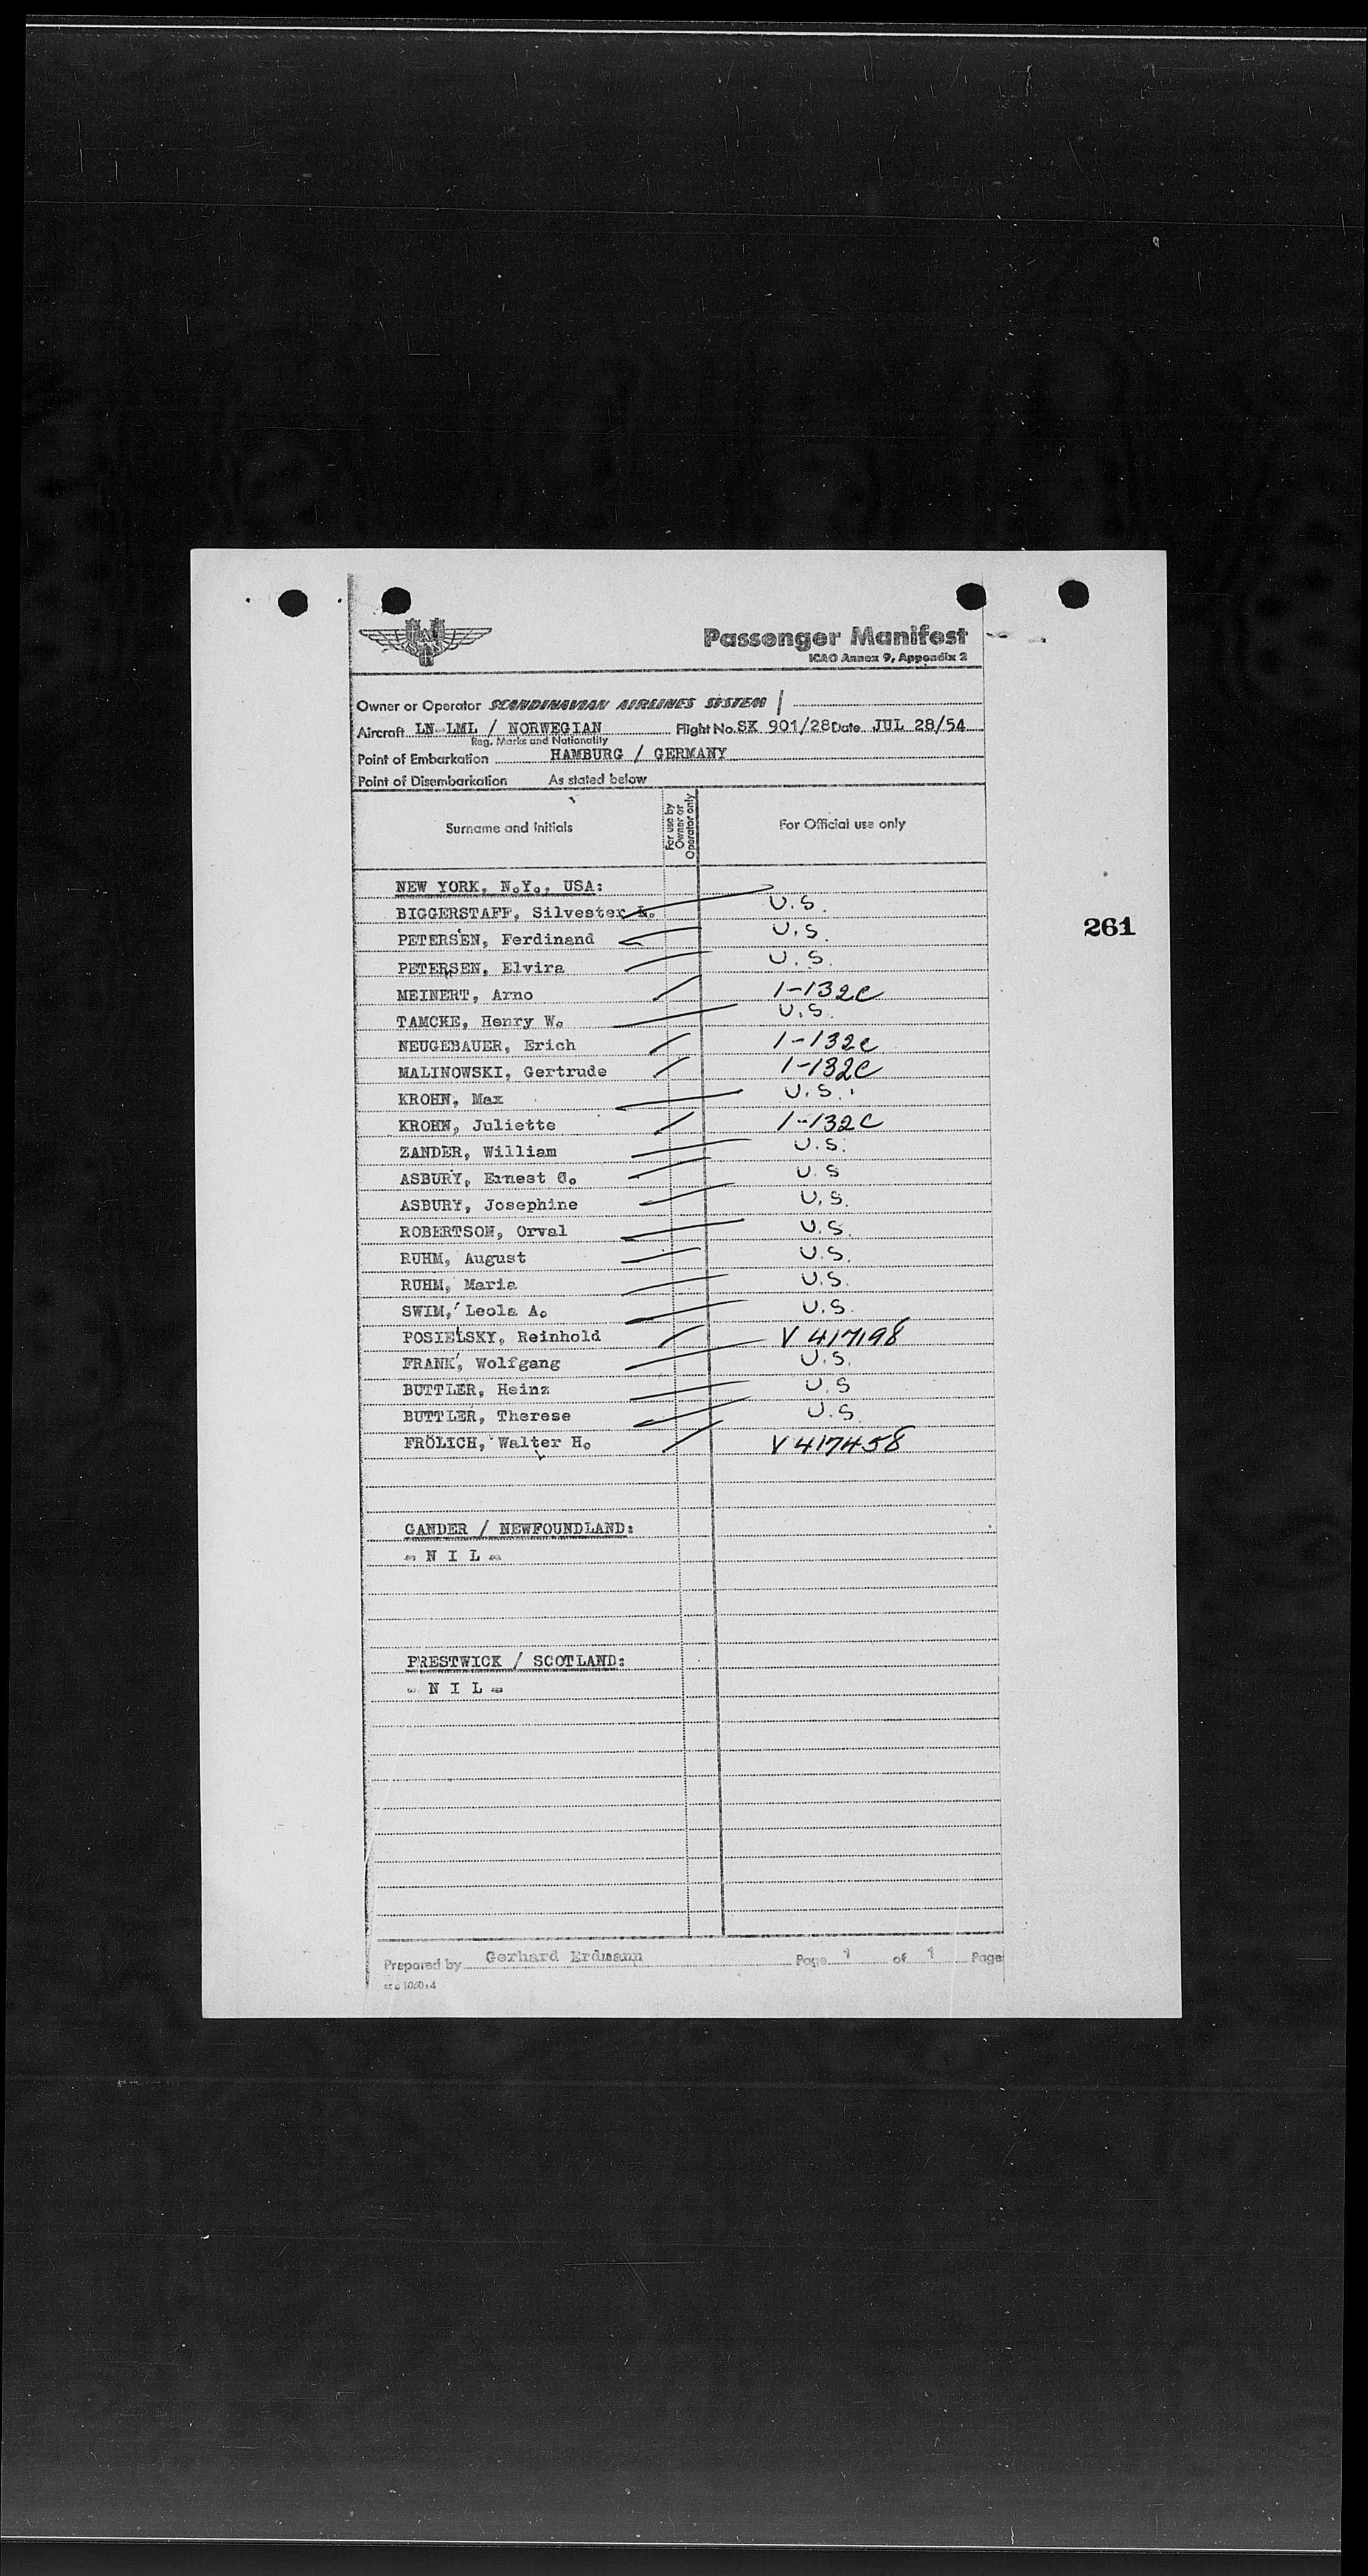 SAS
Passenger Manifest
ICAO Annex 9, Appendix 2
Owner or Operator SCANDINAVIAN AIRLINES SYSTEM
Aircraft LN-LML / NORWEGIAN Flight No. SK 901/28 Date JUL 28/54
Reg. Marks and Nationality
Point of Embarkation HAMBURG / GERMANY
Point of Disembarkation As stated below
Surname and Initials For use by Owner or Operator only For Official use only
NEW YORK, N.Y., USA:
BIGGERSTAFF, Silvester U.S.
PETERSEN, Ferdinand U.S.
261
PETERSEN, Elvira U.S.
MEINERT, Arno 1-132c
TAMCKE, Henry W. U.S.
NEUGEBAUER, Erich 1-132c
MALINOWSKI, Gertrude 1-132c
KROHN, Max U.S.
KROHN, Juliette 1-132c
ZANDER, William U.S.
ASBURY, Ernest G. U.S
ASBURY, Josephine U.S.
ROBERTSON, Orval U.S.
RUHM, August U.S.
RUHM, Maria U.S.
SWIM, Leola A. U.S.
POSIELSKY, Reinhold V 417198
FRANK, Wolfgang U.S.
BUTTLER, Heinz U.S
BUTTLER, Therese U.S
FRÖLICH, Walter H. V 417458
GANDER / NEWFOUNDLAND:
- N I L -
PRESTWICK / SCOTLAND:
- N I L -
Prepared by Gerhard Erdmann Page 1 of 1 Page